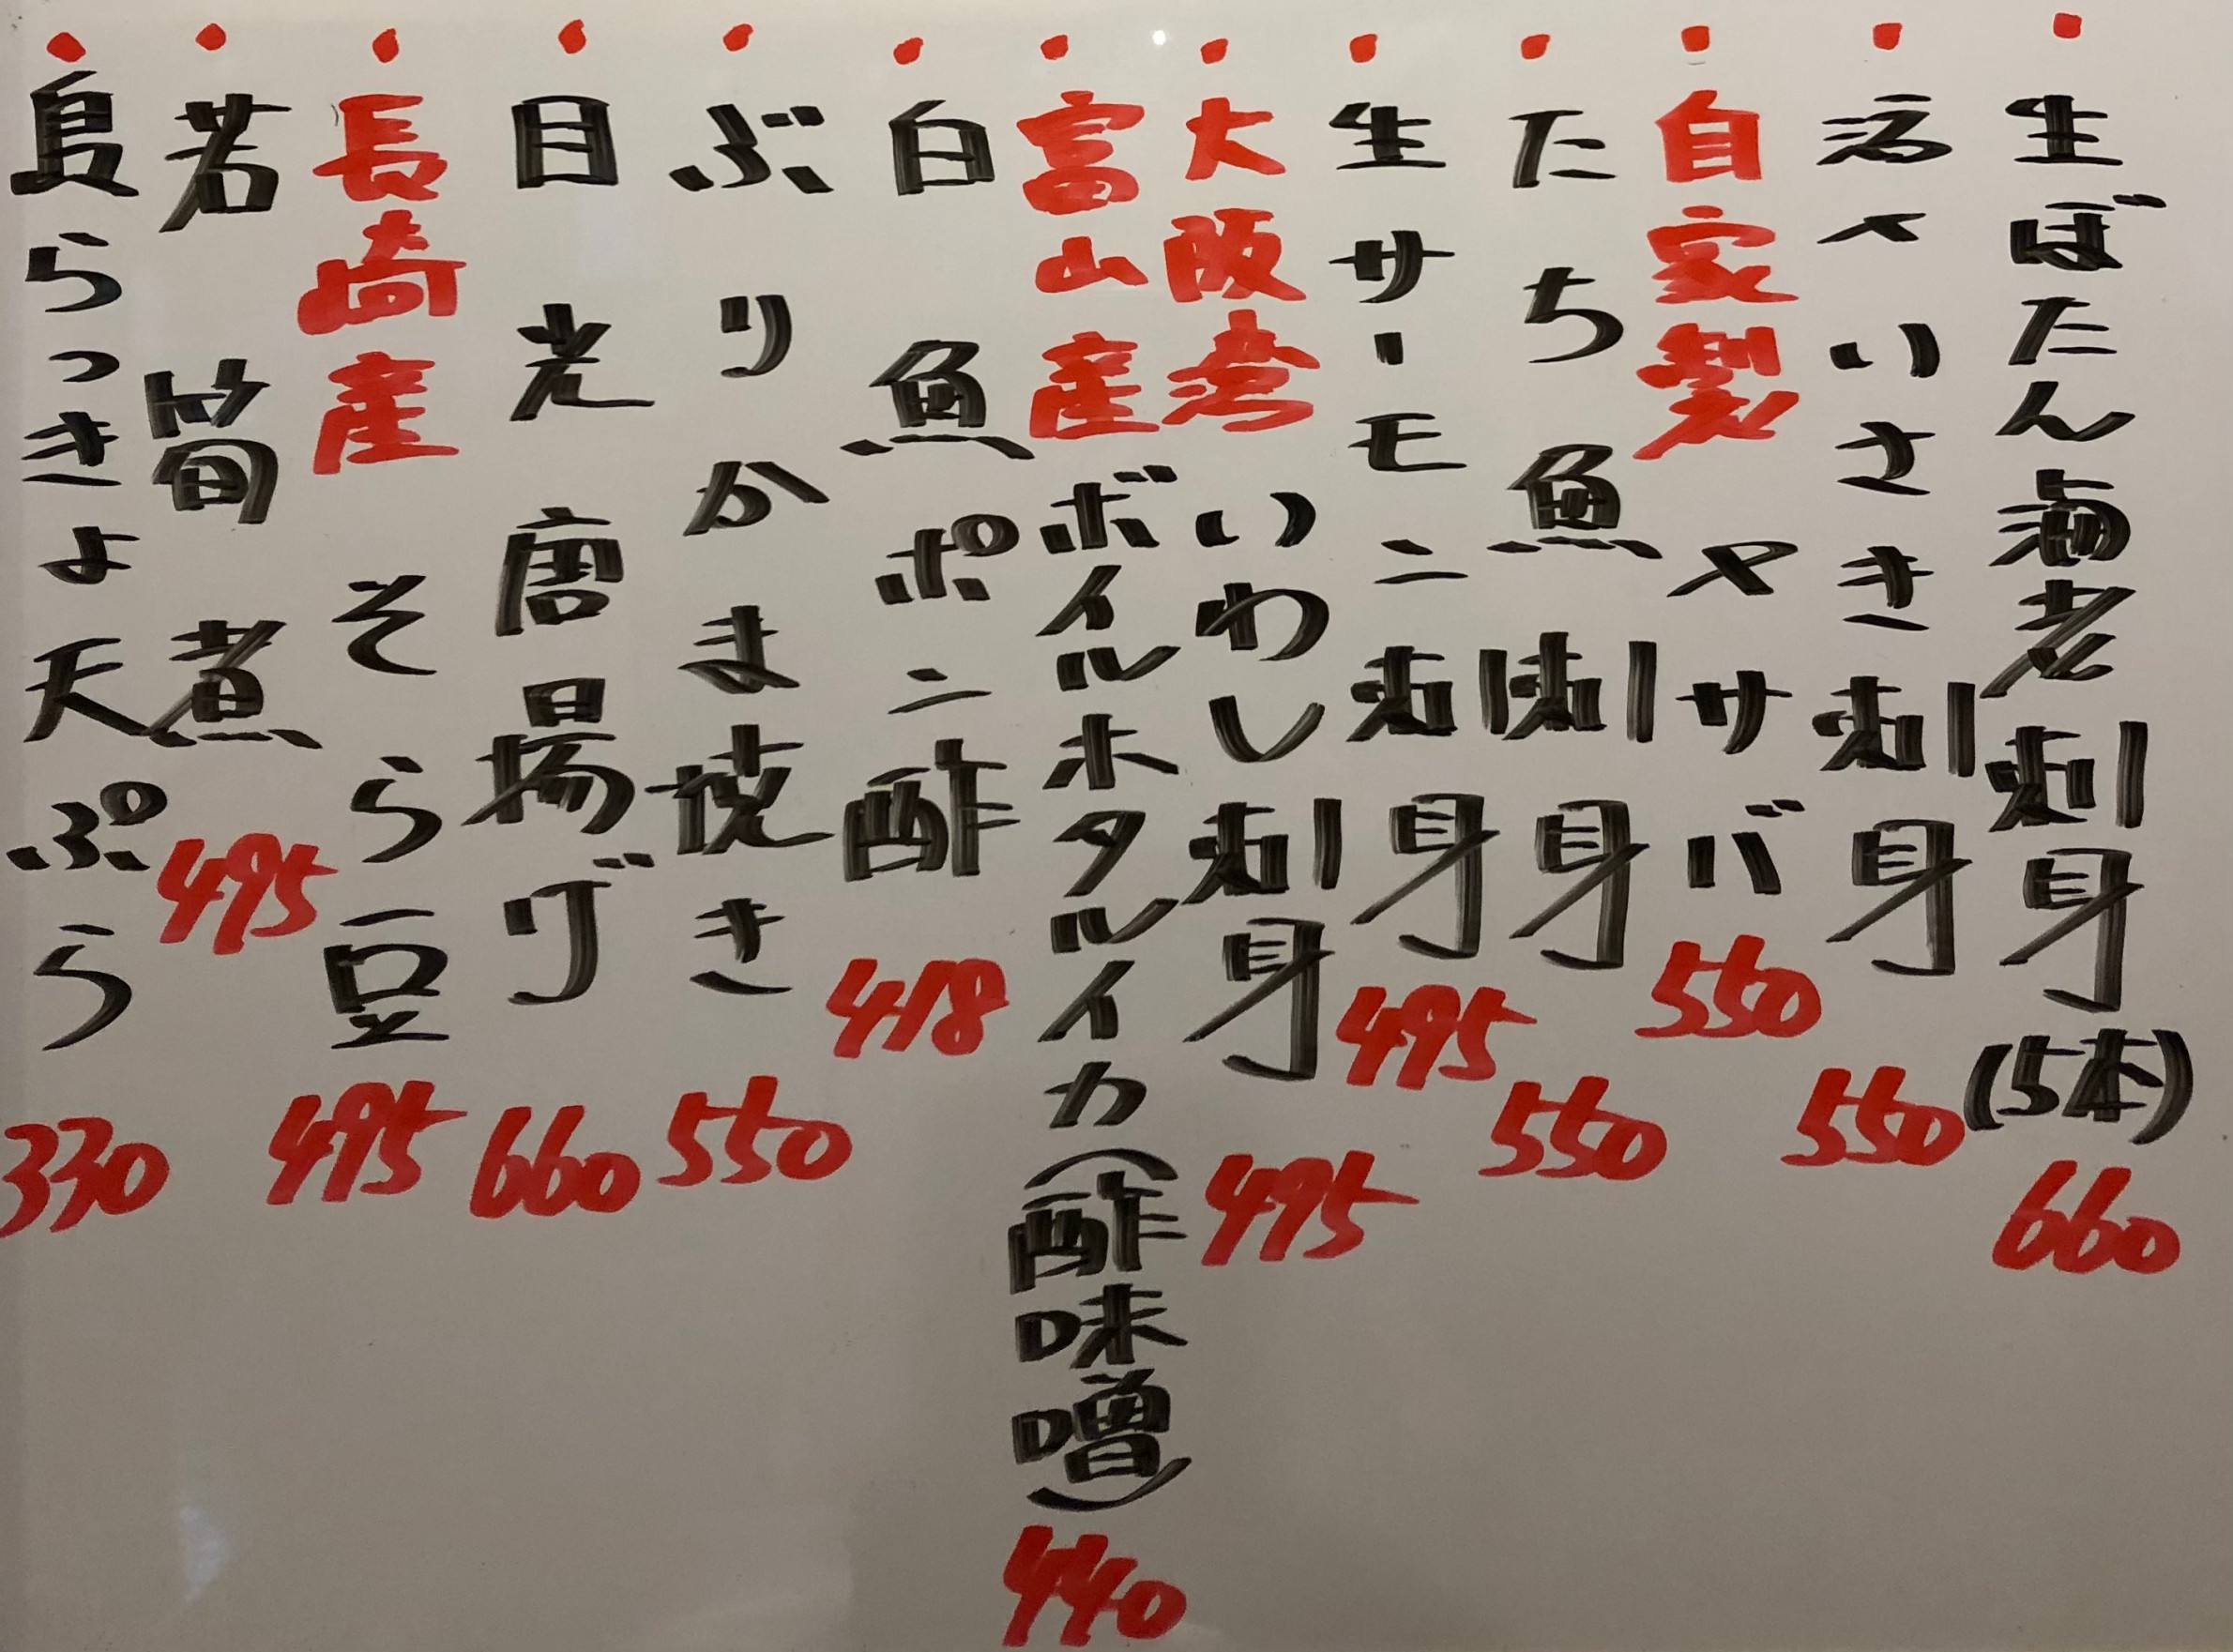 ・生ぼたん海老刺身(5本) 660
・活〆いさき刺身 550
・自家製〆サバ 550
・たち魚刺身 550
・生サーモン刺身 495
・大阪湾いわし刺身 495
・富山産ボイルホタルイカ(酢味噌) 440
・白魚ポン酢 418
・ぶりかま焼き 550
・目光唐揚げ 660
・長崎産そら豆 495
・若筍煮 495
・島らっきょ天ぷら 330